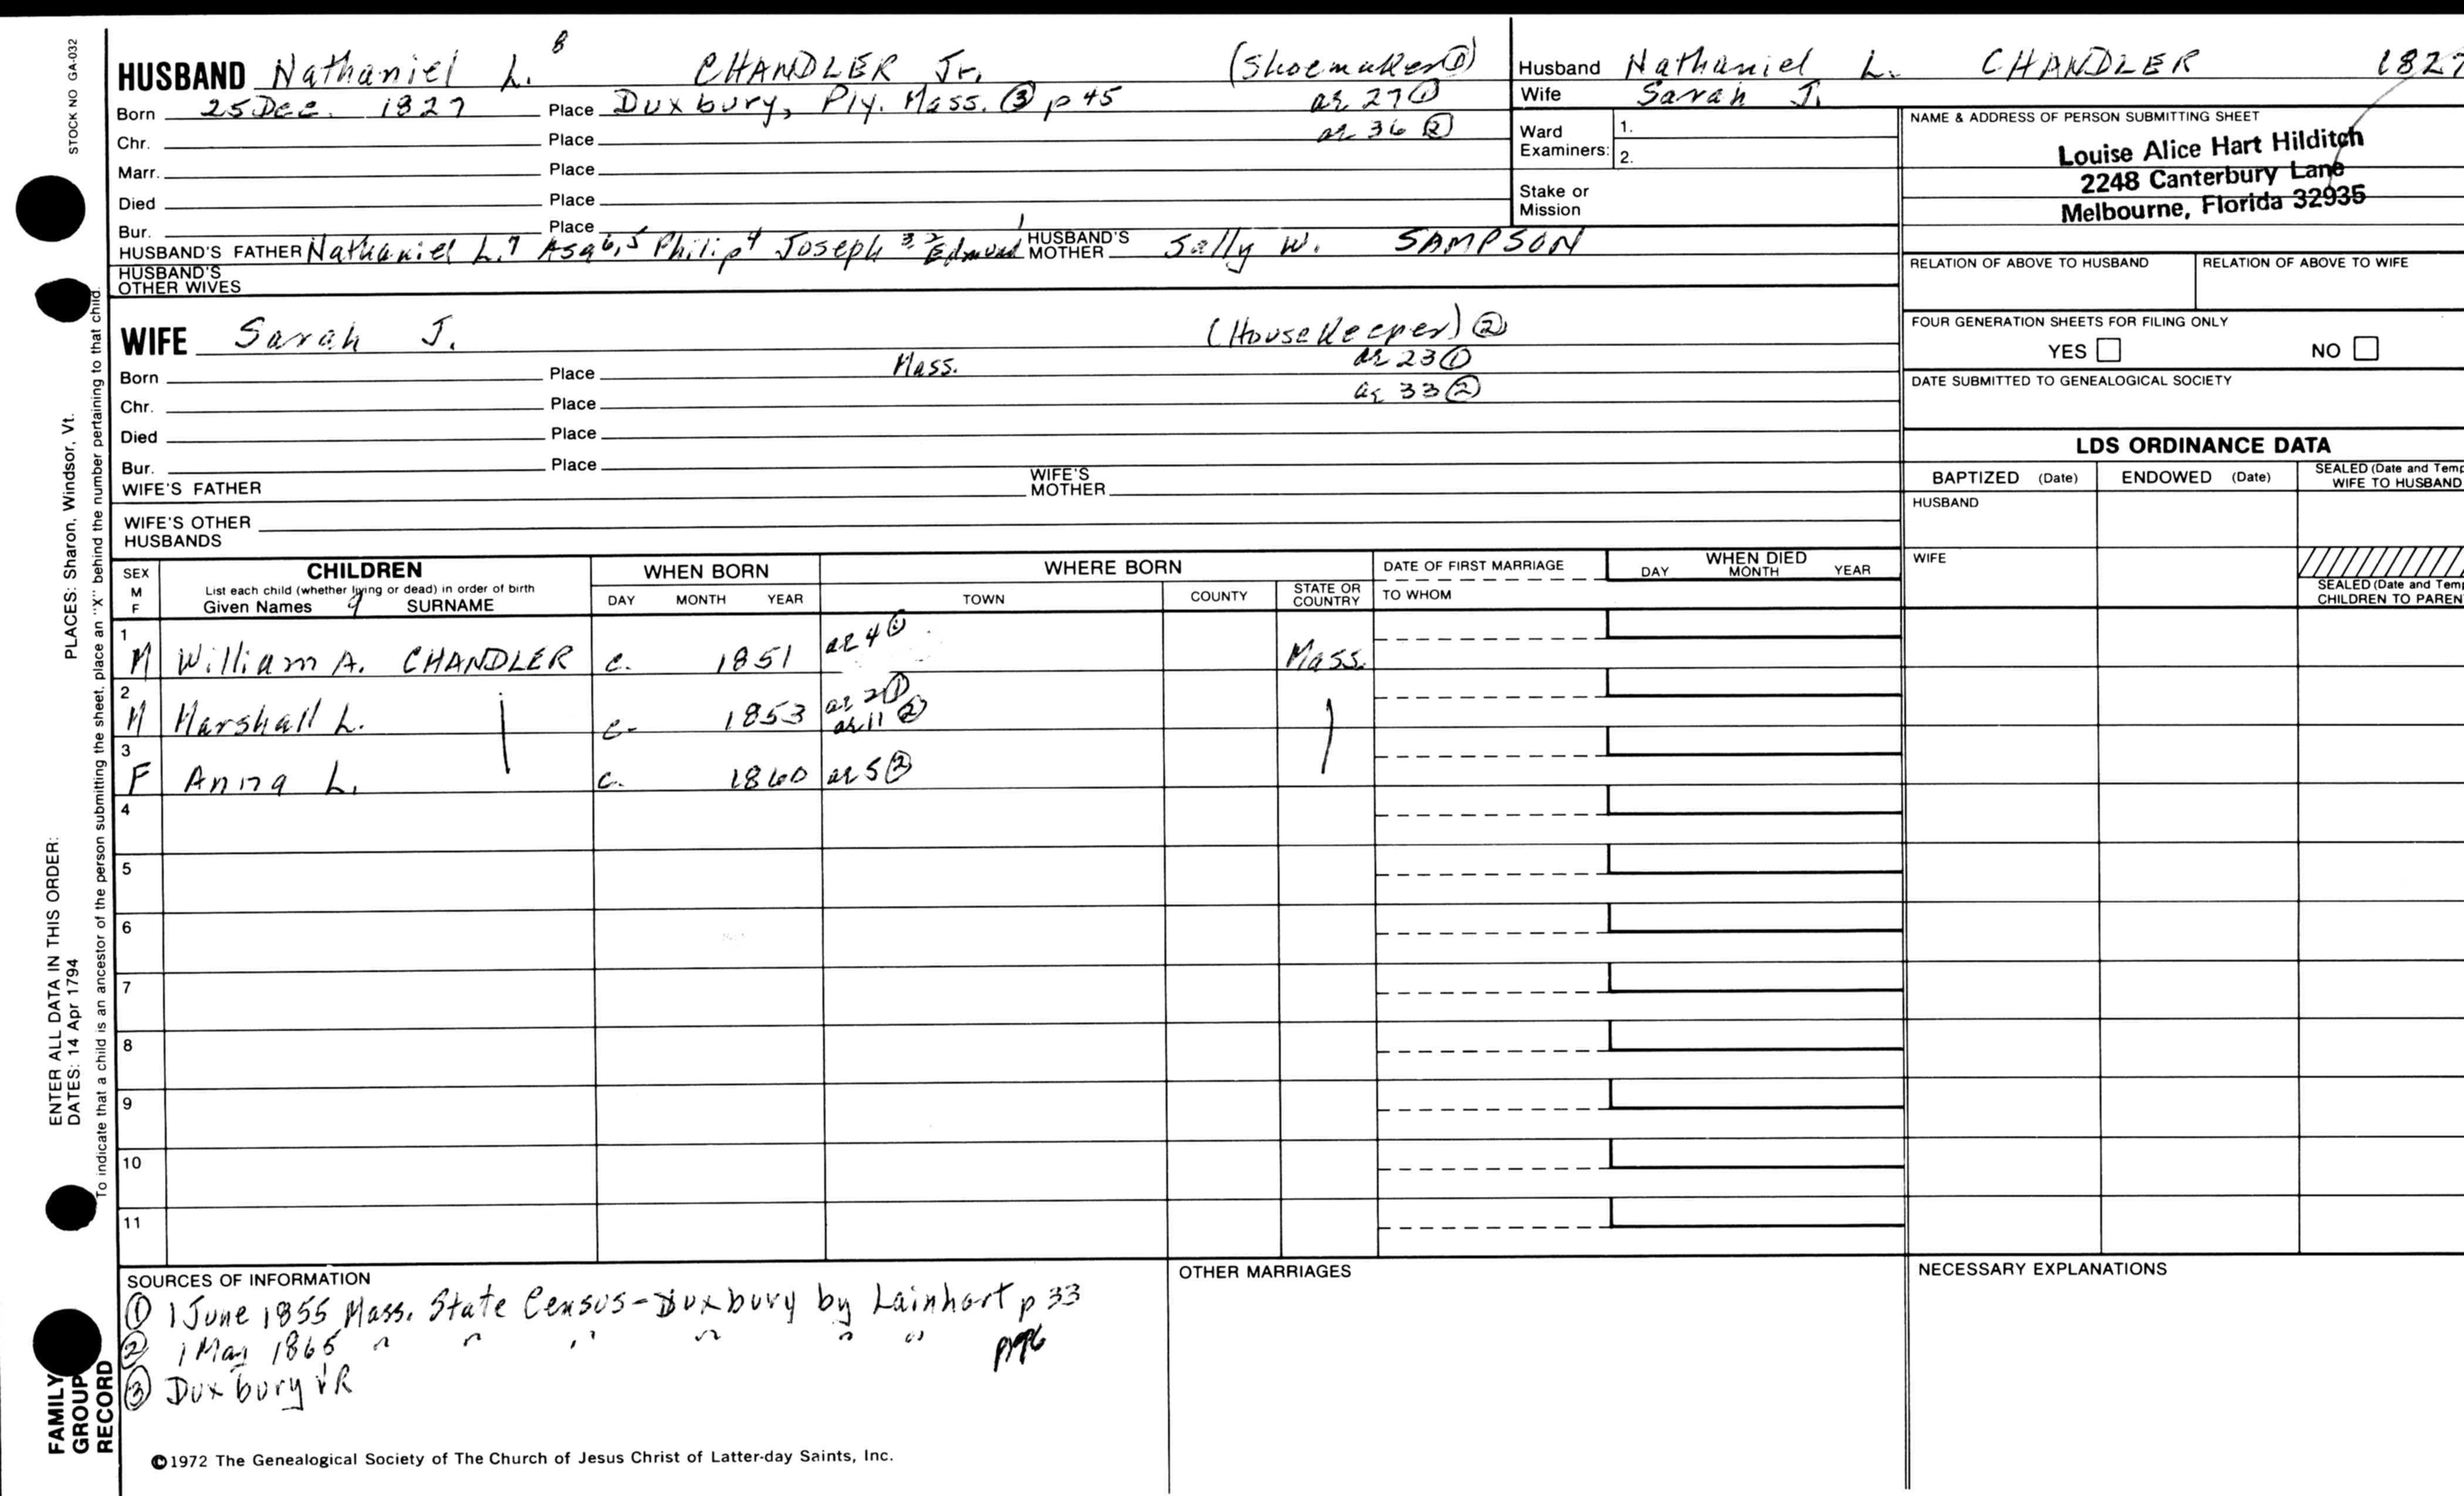 STOCK NO GA-032
HUSBAND Nathaniel L. 8 CHANDLER Jr. (Shoemaker ①)
Born 25 Dec. 1827 Place Duxbury, Ply. Mass. ③ p 45 ae 27 ①
Chr. Place ae 36 ②
Marr. Place
Died Place
Bur. Place
HUSBAND'S FATHER Nathaniel L.7 Asa 6,5 Philip 4 Joseph 3,2 Edmund 1 HUSBAND'S MOTHER Sally W. SAMPSON
HUSBAND'S OTHER WIVES
WIFE Sarah J. (Housekeeper) ②
Born Place Mass. ae 23 ①
Chr. Place ae 33 ②
Died Place
Bur. Place
WIFE'S FATHER WIFE'S MOTHER
WIFE'S OTHER HUSBANDS
Husband Nathaniel L. CHANDLER 1827
Wife Sarah J.
Ward Examiners: 1.
2.
Stake or Mission
NAME & ADDRESS OF PERSON SUBMITTING SHEET
Louise Alice Hart Hilditch
2248 Canterbury Lane
Melbourne, Florida 32935
RELATION OF ABOVE TO HUSBAND RELATION OF ABOVE TO WIFE
FOUR GENERATION SHEETS FOR FILING ONLY
YES NO
DATE SUBMITTED TO GENEALOGICAL SOCIETY
LDS ORDINANCE DATA
BAPTIZED (Date) ENDOWED (Date) SEALED (Date and Temp
WIFE TO HUSBAND
HUSBAND
WIFE
SEALED (Date and Temp
CHILDREN TO PAREN
SEX M F CHILDREN WHEN BORN WHERE BORN DATE OF FIRST MARRIAGE WHEN DIED
List each child (whether living or dead) in order of birth
Given Names 9 SURNAME DAY MONTH YEAR TOWN COUNTY STATE OR COUNTRY TO WHOM DAY MONTH YEAR
1 M William A. CHANDLER c. 1851 ae 4 ① Mass.
2 M Marshall L. c. 1853 ae 2 ① ae 11 ②
3 F Anna L. c. 1860 ae 5 ②
4
5
6
7
8
9
10
11
SOURCES OF INFORMATION
① 1 June 1855 Mass. State Census - Duxbury by Lainhart p 33
② 1 May 1865 " " " " " "
③ Duxbury VR
OTHER MARRIAGES
NECESSARY EXPLANATIONS
©1972 The Genealogical Society of The Church of Jesus Christ of Latter-day Saints, Inc.
FAMILY GROUP RECORD
ENTER ALL DATA IN THIS ORDER:
DATES: 14 Apr 1794
PLACES: Sharon, Windsor, Vt.
To indicate that a child is an ancestor of the person submitting the sheet, place an "X" behind the number pertaining to that child.